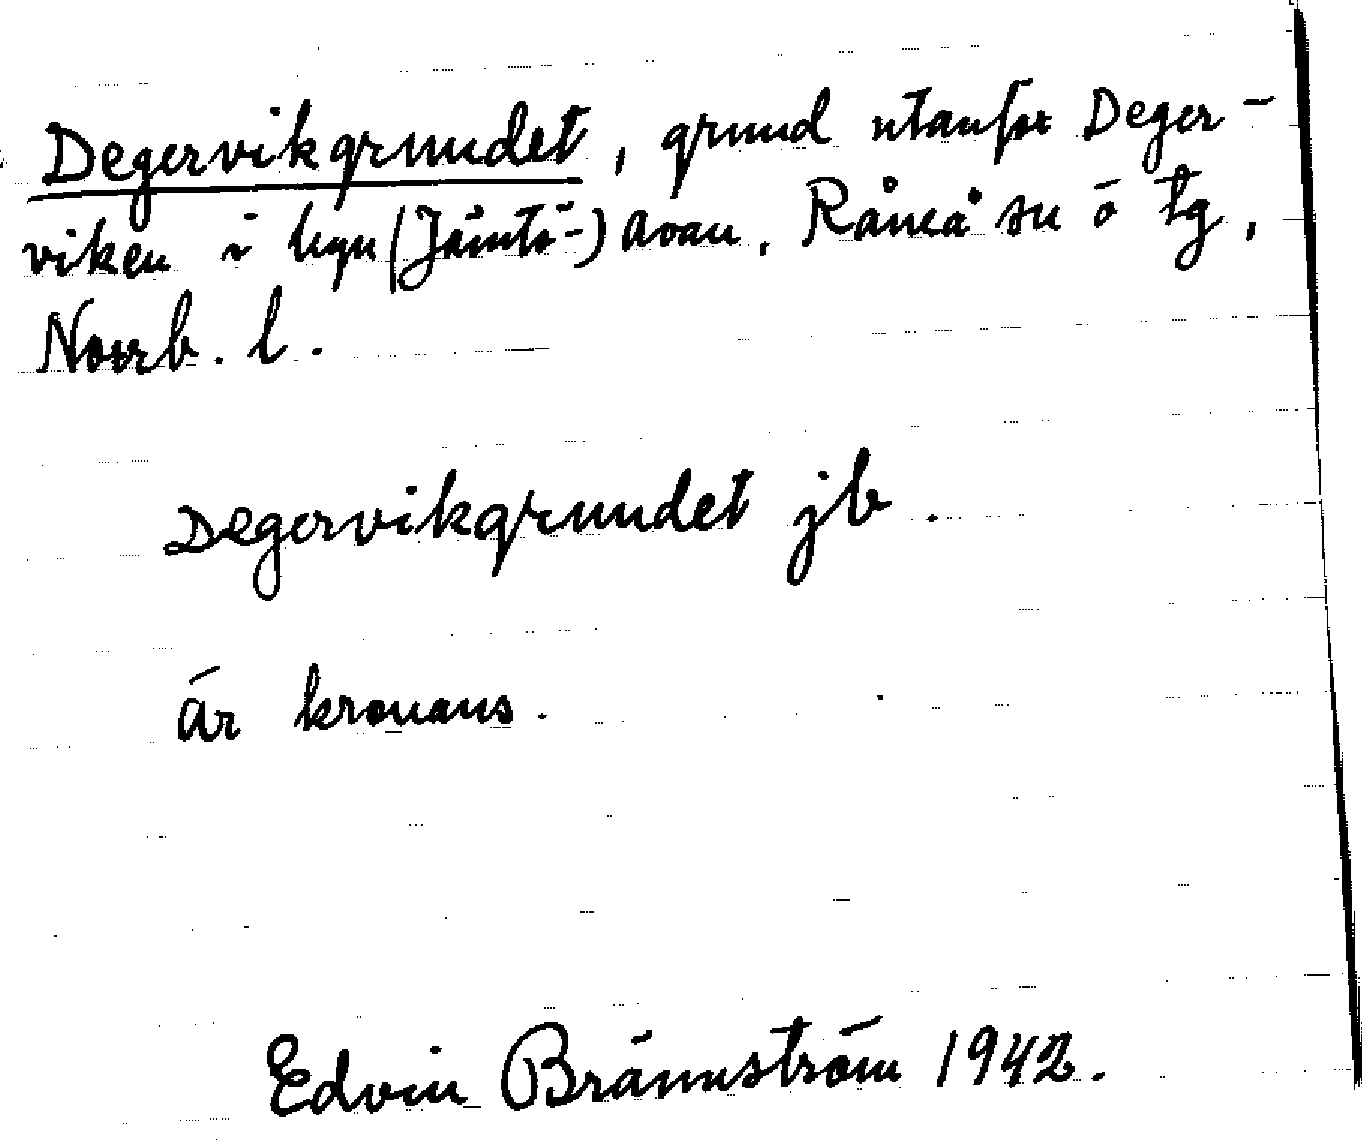 Degervikgrundet, grund utanför Deger-
viken i byn (Jämtö-) Avan, Råneå sn o tg,
Norrb. l.
Degervikgrundet jb.
är kronans.
Edvin Brännström 1942.